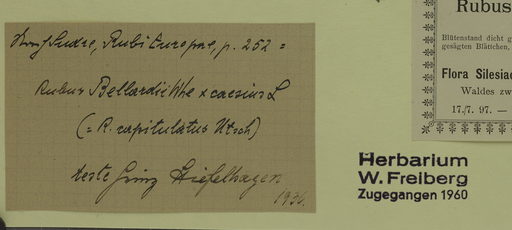 Sudre, Rubi Europae, p. 252 =
Rubus Bellardii Whe x caesius L
(= R. capitulatus Utsch)
teste Heinz Hiefelhagen
1936.
Rubus
Blütenstand dicht g
gesägten Blättchen,
Flora Silesia
Waldes zw
17./7. 97. —
Herbarium
W. Freiberg
Zugegangen 1960